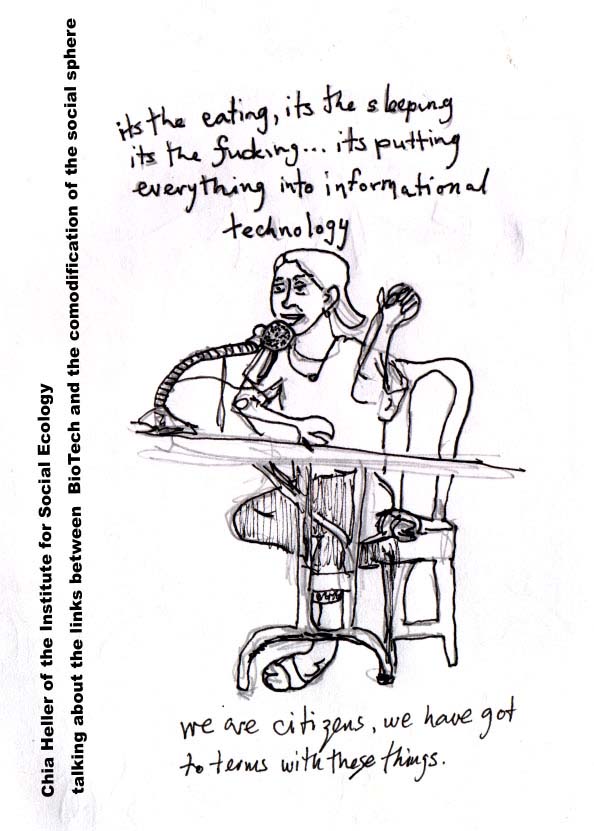 its the eating, its the sleeping
its the fucking... its putting
everything into informational
technology
we are citizens, we have got
to terms with these things.
Chia Heller of the Institute for Social Ecology
talking about the links between BioTech and the comodification of the social sphere